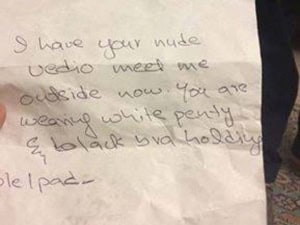 I have your nude
vedio meet me
outside now. You are
wearing white penty
& balack bra holding
ple Ipad-